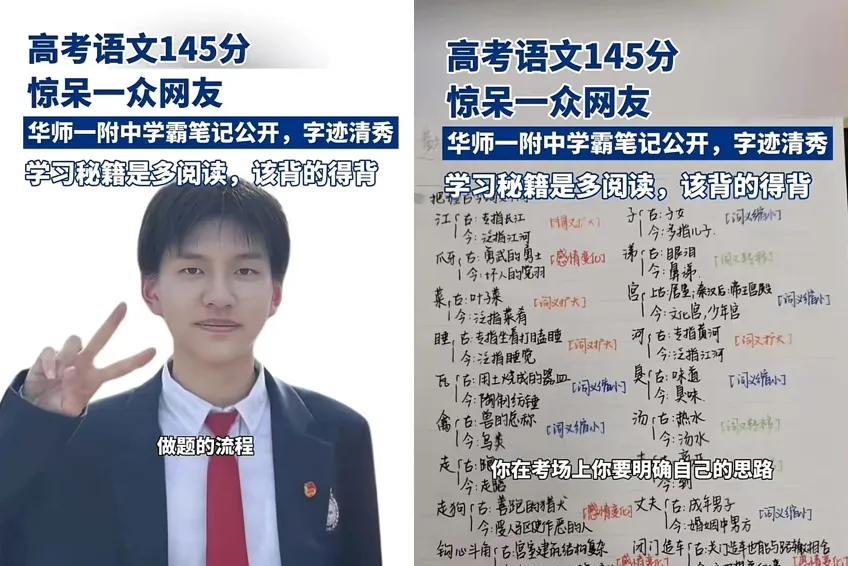 高考语文145分
惊呆一众网友
华师一附中学霸笔记公开，字迹清秀
学习秘籍是多阅读，该背的得背
做题的流程
高考语文145分
惊呆一众网友
华师一附中学霸笔记公开，字迹清秀
学习秘籍是多阅读，该背的得背
江 古：专指长江 [词义扩大]
今：泛指江河
爪牙 古：勇武的勇士 [感情变化]
今：坏人的党羽
菜 古：叶子菜 [词义扩大]
今：泛指菜肴
睡 古：专指坐着打瞌睡 [词义扩大]
今：泛指睡觉
瓦 古：用土烧成的器皿 [词义缩小]
禽 古：兽的总称 [词义缩小]
今：鸟类
走
今：走路
走狗 古：善跑的猎犬 [感情变化]
今：受人豢使作恶的人
钩心斗角 古：宫室建筑结构复杂
子 古：子女 [词义缩小]
今：多指儿子
涕 古：眼泪 [词义转移]
今：鼻涕
宫 上古：居室；秦汉后：帝王宫殿 [词义缩小]
今：文化宫，少年宫
河 古：专指黄河 [词义扩大]
今：泛指江河
臭 古：味道 [词义缩小]
今：臭味
汤 古：热水 [词义转移]
今：汤水
今：到
丈夫 古：成年男子 [词义缩小]
今：婚姻中男方
闭门造车
你在考场上你要明确自己的思路